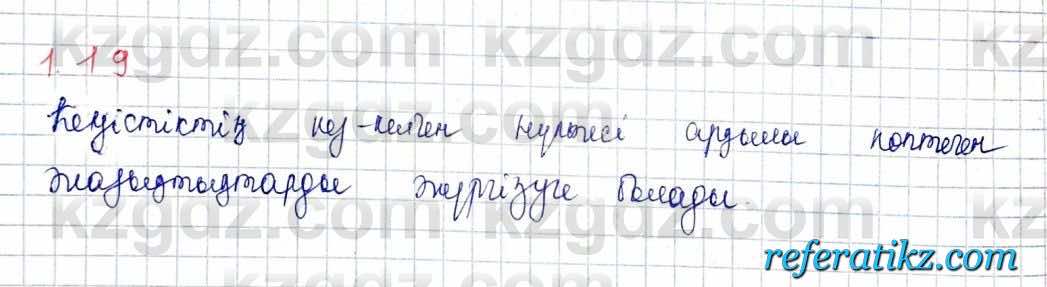 kzgdz.com kzgdz.com kz
1.19
Кеңістіктің кез-келген нүктесі арқылы көптеген
жазықтықтарды жүргізуге болады.
kzgdz.com kzgdz.com kz
referatikz.com